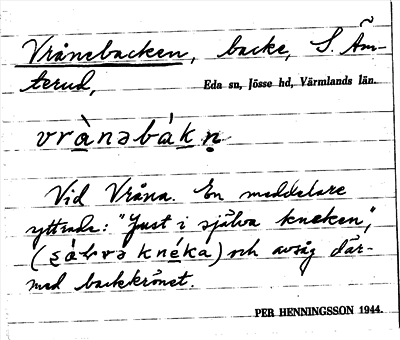 Vrånebacken, backe, S. Åm-
terud,
Eda sn, Jösse hd, Värmlands län.
vrànəbákṇ
Vid Vråna. En meddelare
yttrade: "Just i själva kneken",
(ʂálvə knéka) och avsåg där-
med backkrönet.
PER HENNINGSSON 1944.